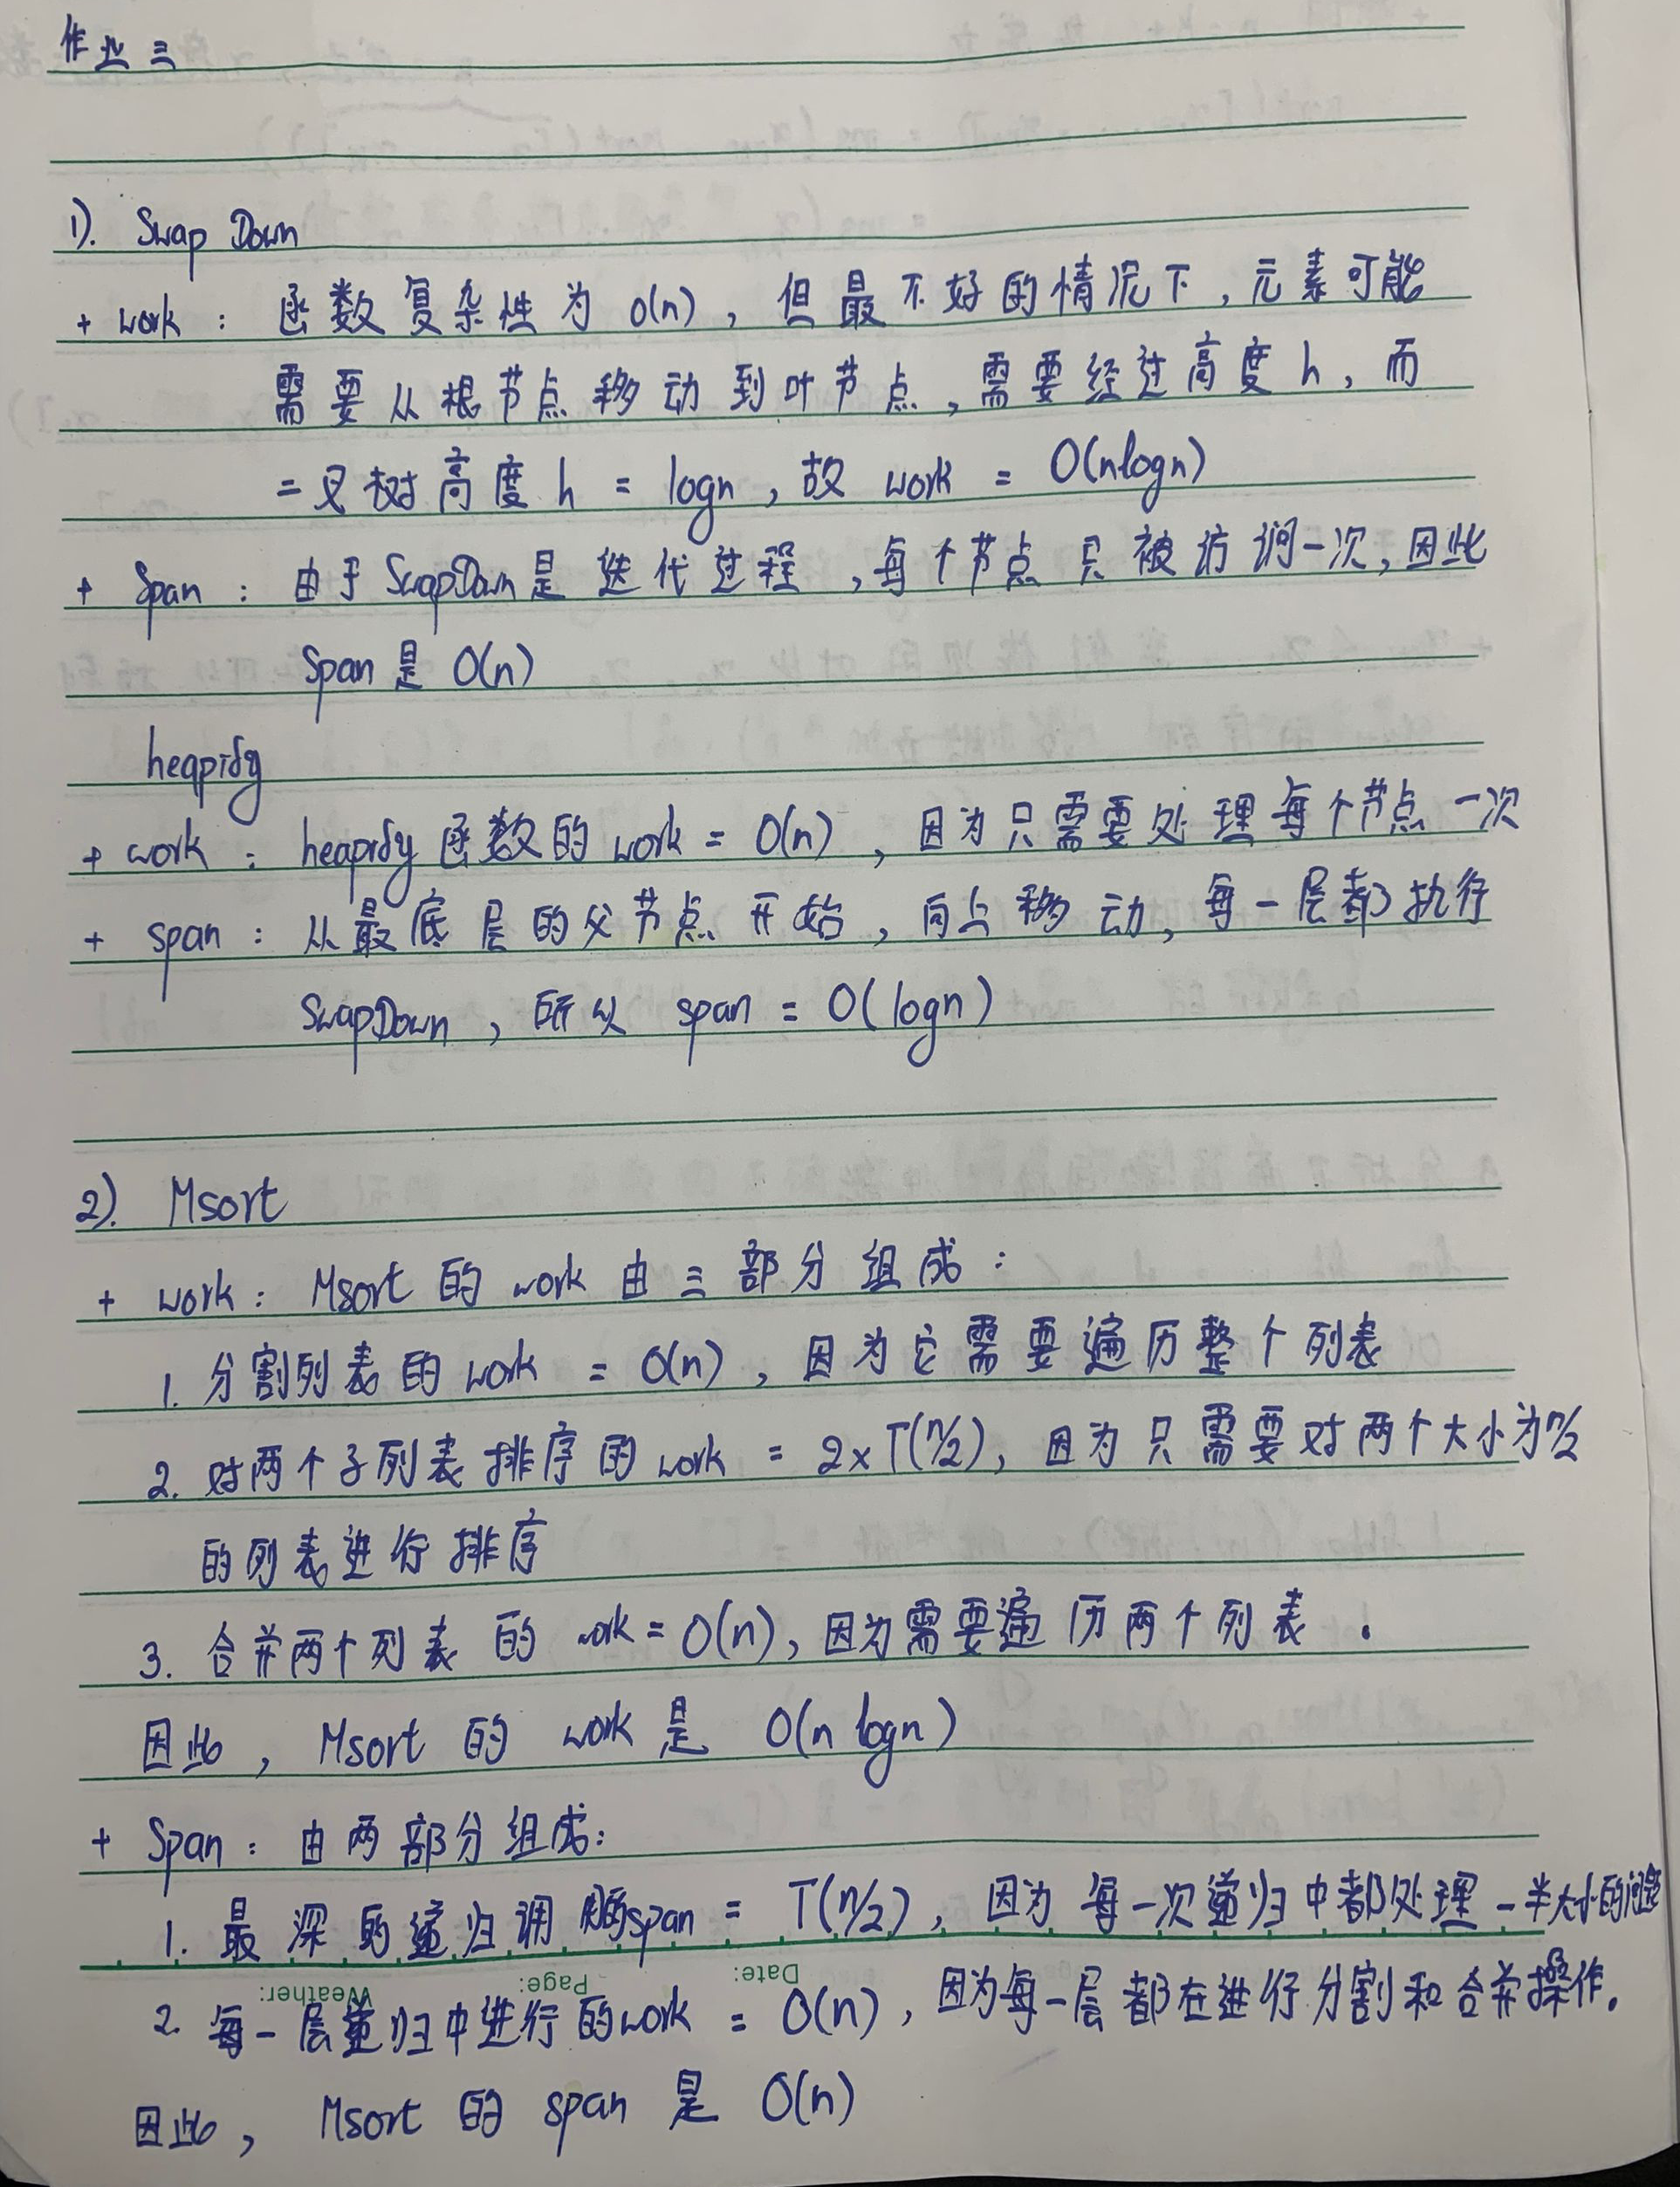 作业三
1). Swap Down
+ work : 函数复杂性为 O(n), 但最不好的情况下, 元素可能
需要从根节点移动到叶节点, 需要经过高度 h, 而
二叉树高度 h = logn, 故 work = O(nlogn)
+ Span : 由于 SwapDown 是迭代过程, 每个节点只被访问一次, 因此
Span 是 O(n)
heapify
+ work : heapify 函数的 work = O(n), 因为只需要处理每个节点一次
+ span : 从最底层的父节点开始, 向上移动, 每一层都执行
SwapDown, 所以 span = O(logn)
2). Msort
+ work : Msort 的 work 由三部分组成:
1. 分割列表的 work = O(n), 因为它需要遍历整个列表
2. 对两个子列表排序的 work = 2×T(n/2), 因为只需要对两个大小为n/2
的列表进行排序
3. 合并两个列表的 work = O(n), 因为需要遍历两个列表.
因此, Msort 的 work 是 O(n logn)
+ Span : 由两部分组成:
1. 最深的递归调用的span = T(n/2), 因为每一次递归中都处理一半大小的问题
Weather: Page: Date:
2. 每一层递归中进行的work = O(n), 因为每一层都在进行分割和合并操作.
因此, Msort 的 span 是 O(n)